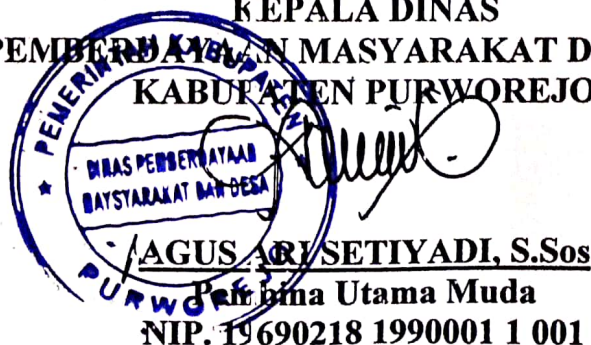 KEPALA DINAS
PEMBERDAYAAN MASYARAKAT D
KABUPATEN PURWOREJO
PEMERINTAH KABUPATEN
DINAS PEMBERDAYAAN
MAYSYARAKAT DAN DESA
PURWOREJO
AGUS ARI SETIYADI, S.Sos
Pembina Utama Muda
NIP. 19690218 1990001 1 001